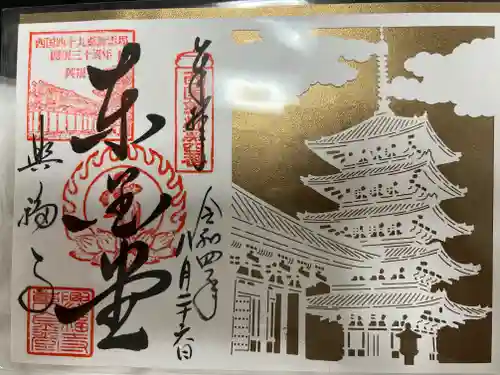 奉拝
令和四年
八月二十六日
東金堂
興福寺
西国四十九薬師霊場
開創三十周年